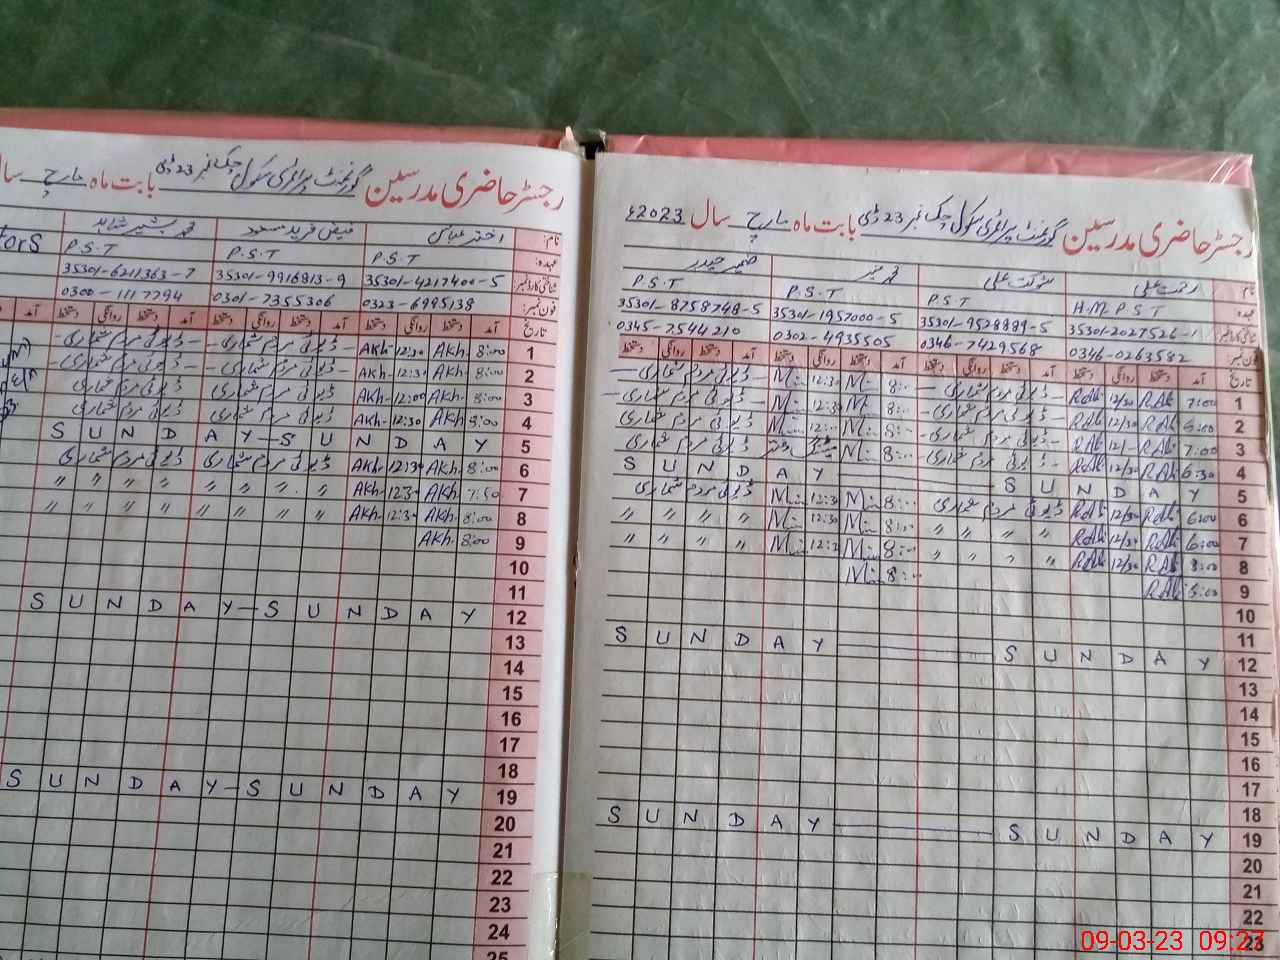 رجسٹر حاضری مدرسین گورنمنٹ پرائمری سکول چک نمبر 23 ڈی بابت ماہ مارچ سال 2023ء
نام: رحمت علی شوکت علی محمد منیر ضمیر حیدر
عہدہ: H.M P.S.T P.S.T P.S.T P.S.T
شناختی کارڈ نمبر: 35301-2027526-1 35301-9528889-5 35301-1957000-5 35301-8758748-5
فون نمبر: 0346-0263582 0346-7429568 0302-4935505 0345-7544210
تاریخ آمد دستخط روانگی دستخط آمد دستخط روانگی دستخط آمد دستخط روانگی دستخط آمد دستخط روانگی دستخط
1 7:00 RAli 12/30 RAli ڈیوٹی مردم شماری 8:00 M 12:30 M ڈیوٹی مردم شماری
2 RAli 12/30 RAli ڈیوٹی مردم شماری 8:00 M 12:30 M ڈیوٹی مردم شماری
3 7:00 RAli RAli ڈیوٹی مردم شماری 8:00 M 12:00 M ڈیوٹی مردم شماری
4 6:30 RAli 12/30 RAli ڈیوٹی مردم شماری 8:00 M ڈیوٹی مردم شماری
5 S U N D A Y S U N D A Y
6 6:00 RAli 12/30 RAli ڈیوٹی مردم شماری 8:00 M 12:30 M ڈیوٹی مردم شماری
7 6:00 RAli 12/30 RAli " " " " 8:00 M 12:30 M " " " "
8 8:00 RAli 12/30 RAli " " " " 8:00 M M " " " "
9 RAli 8:00 M
10
11
12 S U N D A Y S U N D A Y
13
14
15
16
17
18
19 S U N D A Y S U N D A Y
20
21
22
23
رجسٹر حاضری مدرسین گورنمنٹ پرائمری سکول چک نمبر 23 ڈی بابت ماہ مارچ سال
نام: اختر عباس فیض فرید مسعود محمد بشیر شاہد
عہدہ: P.S.T P.S.T P.S.T
شناختی کارڈ نمبر: 35301-4217400-5 35301-9916813-9 35301-6211363-7
فون نمبر: 0323-6995138 0301-7355306 0300-1117794
تاریخ آمد دستخط روانگی دستخط آمد دستخط روانگی دستخط آمد دستخط روانگی دستخط آمد
1 8:00 Akh. 12:30 Akh. ڈیوٹی مردم شماری ڈیوٹی مردم شماری
2 8:00 Akh. 12:30 Akh. ڈیوٹی مردم شماری ڈیوٹی مردم شماری
3 8:00 Akh. 12:00 Akh. ڈیوٹی مردم شماری ڈیوٹی مردم شماری
4 8:00 Akh. 12:30 Akh. ڈیوٹی مردم شماری ڈیوٹی مردم شماری
5 S U N D A Y S U N D A Y
6 8:00 Akh. 12:30 Akh. ڈیوٹی مردم شماری ڈیوٹی مردم شماری
7 7:50 Akh. 12:30 Akh. " " " " " " " "
8 8:00 Akh. 12:30 Akh. " " " " " " " "
9 8:00 Akh.
10
11
12 S U N D A Y S U N D A Y
13
14
15
16
17
18
19 S U N D A Y S U N D A Y
20
21
22
23
24
25
09-03-23 09:27